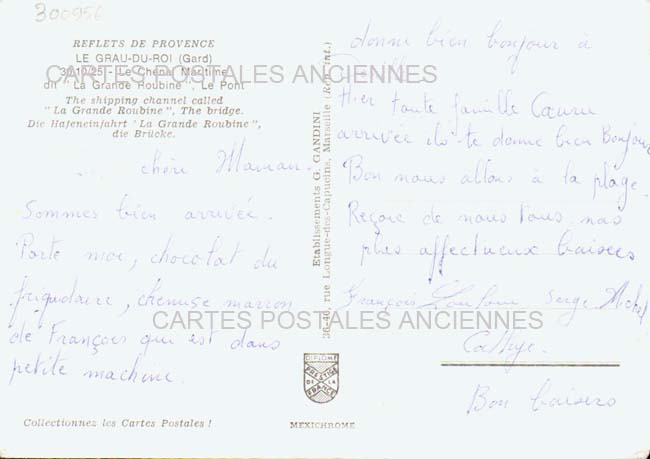 300956
REFLETS DE PROVENCE
LE GRAU-DU-ROI (Gard)
30/10/25 - Le Chenal Maritime
dit "La Grande Roubine", Le Pont
The shipping channel called
"La Grande Roubine", The bridge.
Die Hafeneinfahrt "La Grande Roubine",
die Brücke.
CARTES POSTALES ANCIENNES
chère Maman.
Sommes bien arrivée.
Porte moi, chocolat du
frigidaire, chemise marron
de François qui est dans
petite machine.
Collectionnez les Cartes Postales !
Etablissements G. GANDINI
36-40, rue Longue-des-Capucins, Marseille (Rep. int.)
DIPLOME
PRESTIGE
DE LA
FRANCE
MEXICHROME
donne bien bonjour à
Hier toute famille
arrivée ils te donne bien Bonjour
Bon nous allons à la plage.
Reçois de nous tous nos
plus affectueux baisers
François Serge Michel
CARTES POSTALES ANCIENNES
Bon baisers